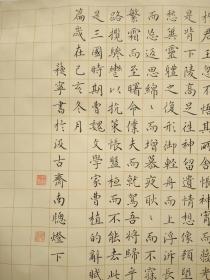 君王忽不悟其所舍悵神宵而
是背下陵高足往神留遺情想像顧
愁冀靈體之復形御輕舟而上泝浮長
而忘返思綿綿而增慕夜耿耿而不
繁霜而至曙命僕夫而就駕吾將歸乎
路攬騑轡以抗策悵盤桓而不能去此
是三國時期曹魏文學家曹植的辭賦
篇歲在己亥冬月
寧書於汲古齋南窗燈下